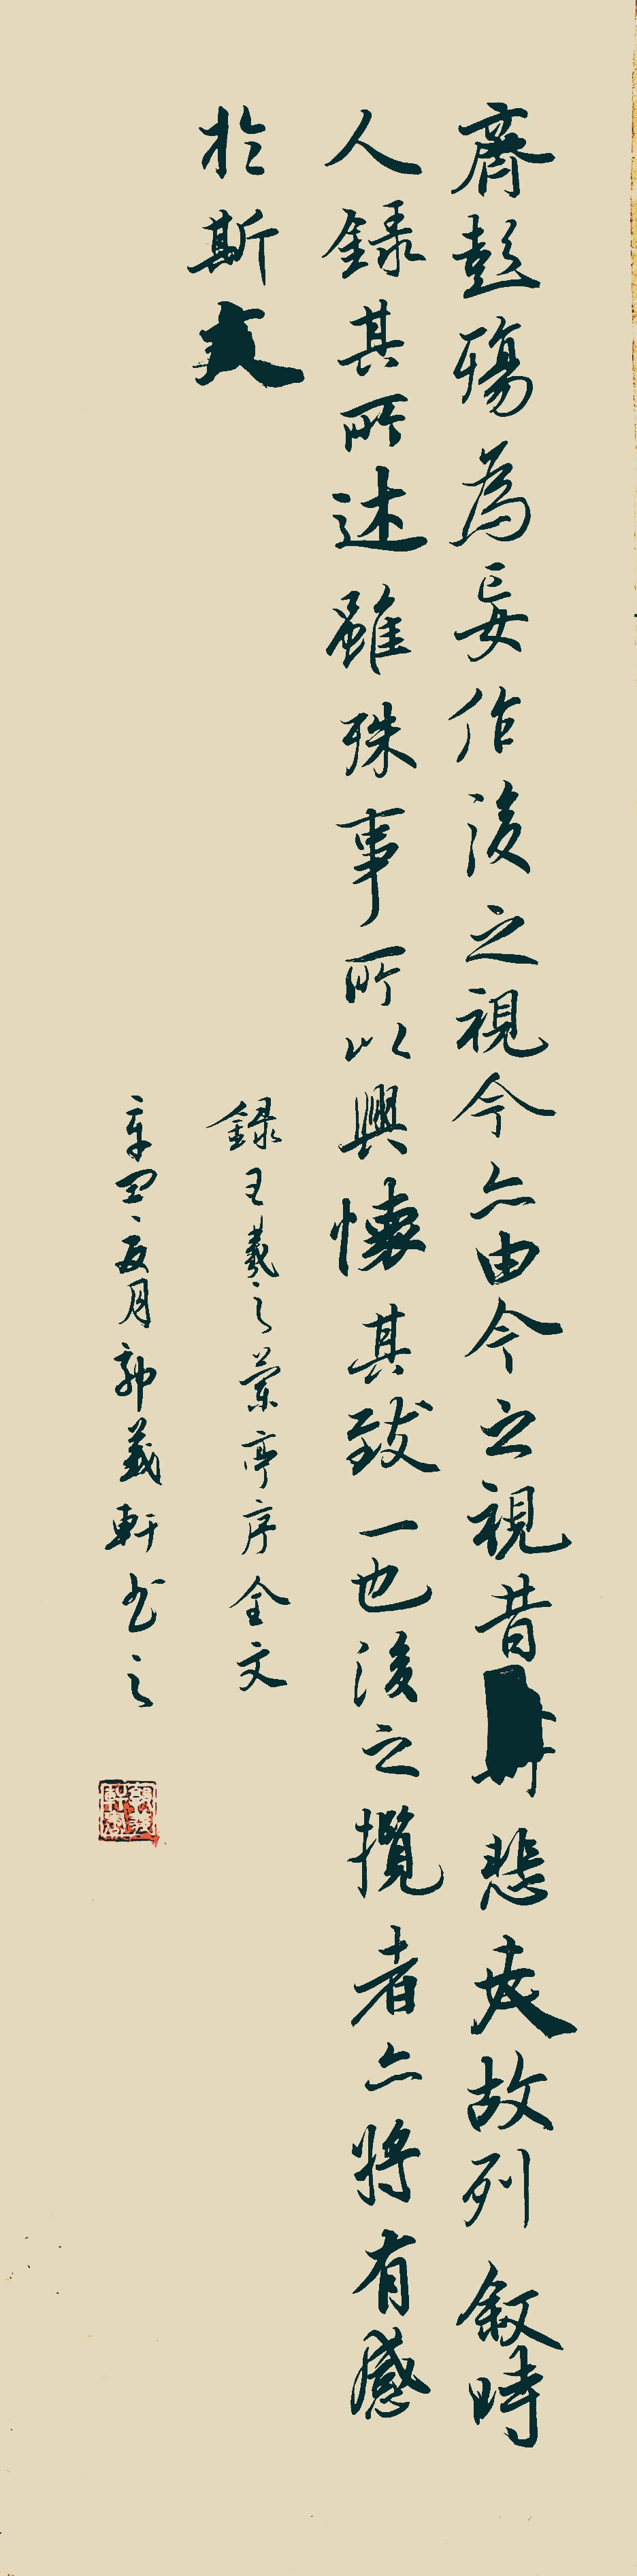 齊彭殤為妄作後之視今亦由今之視昔悲夫故列叙時
人録其所述雖殊事所以興懷其致一也後之攬者亦將有感
於斯文
録王羲之蘭亭序全文
辛丑夏月郭義軒书之